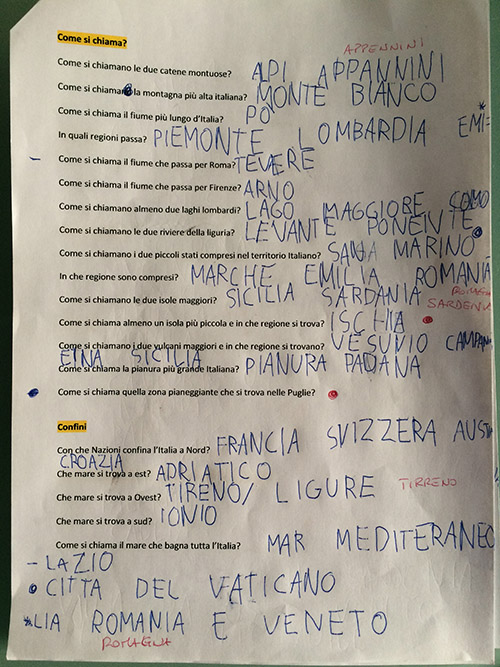 Come si chiama?
APPENNINI
Come si chiamano le due catene montuose? ALPI APPANNINI
Come si chiama la montagna più alta italiana? MONTE BIANCO
Come si chiama il fiume più lungo d'Italia? PO *
In quali regioni passa? PIEMONTE LOMBARDIA EMI=
– Come si chiama il fiume che passa per Roma? TEVERE
Come si chiama il fiume che passa per Firenze? ARNO
Come si chiamano almeno due laghi lombardi? LAGO MAGGIORE COMO
Come si chiamano le due riviere della liguria? LEVANTE PONENTE
Come si chiamano i due piccoli stati compresi nel territorio Italiano? SAN MARINO
In che regione sono compresi? MARCHE EMILIA ROMANIA
ROMAGNA
Come si chiamano le due isole maggiori? SICILIA SARDANIA
SARDEGNA
Come si chiama almeno un isola più piccola e in che regione si trova? ISCHIA
Come si chiamano i due vulcani maggiori e in che regione si trovano? VESUVIO CAMPAN
ETNA SICILIA
Come si chiama la pianura più grande Italiana? PIANURA PADANA
Come si chiama quella zona pianeggiante che si trova nelle Puglie?
Confini
Con che Nazioni confina l'Italia a Nord? FRANCIA SVIZZERA AUST
CROAZIA
Che mare si trova a est? ADRIATICO
Che mare si trova a Ovest? TIRENO/ LIGURE TIRRENO
Che mare si trova a sud? IONIO
Come si chiama il mare che bagna tutta l'Italia? MAR MEDITERANEO
– LAZIO
CITTA DEL VATICANO
*LIA ROMANIA E VENETO
ROMAGNA